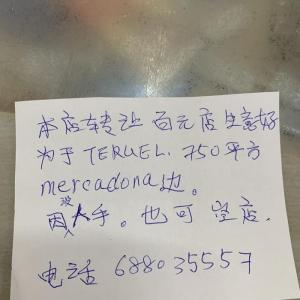 本店转让 百元店生意好
为于 TERUEL. 750平方
mercadona边。
因没人手。也可空店.
电话 688035557